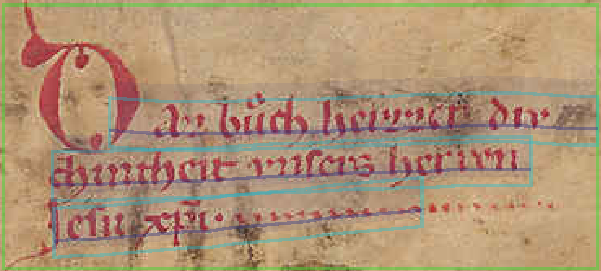 Daz bůch heizzet div
chintheit vnsers herren
Jesu xp̄i